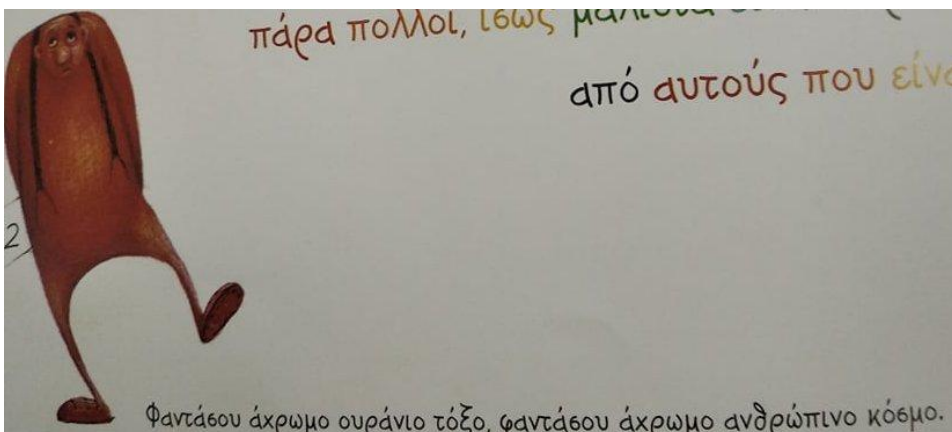 πάρα πολλοί, ίσως μάλιστα
από αυτούς που
2
Φαντάσου άχρωμο ουράνιο τόξο, φαντάσου άχρωμο ανθρώπινο κόσμο.